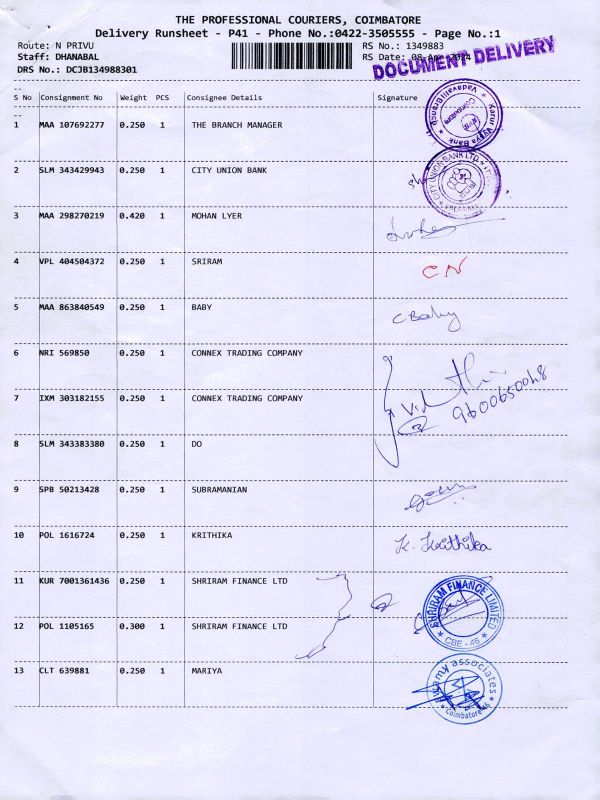 THE PROFESSIONAL COURIERS, COIMBATORE
Delivery Runsheet - P41 - Phone No.:0422-3505555 - Page No.:1
Route: N PRIVU RS No.: 1349883
Staff: DHANABAL RS Date: 08-Apr-2024
DOCUMENT DELIVERY
DRS No.: DCJB134988301
--
S No Consignment No Weight PCS Consignee Details Signature
--
1 MAA 107692277 0.250 1 THE BRANCH MANAGER
Karur Vysya Bank
Coimbatore
2 SLM 343429943 0.250 1 CITY UNION BANK
CITY UNION BANK LTD.
3 MAA 298270219 0.420 1 MOHAN LYER
4 VPL 404504372 0.250 1 SRIRAM CN
5 MAA 863840549 0.250 1 BABY C Baby
6 NRI 569850 0.250 1 CONNEX TRADING COMPANY
7 IXM 303182155 0.250 1 CONNEX TRADING COMPANY
8 SLM 343383380 0.250 1 DO
9 SPB 50213428 0.250 1 SUBRAMANIAN
10 POL 1616724 0.250 1 KRITHIKA K. Krithika
11 KUR 7001361436 0.250 1 SHRIRAM FINANCE LTD
SHRIRAM FINANCE LIMITED
CBE - 46
12 POL 1105165 0.300 1 SHRIRAM FINANCE LTD
13 CLT 639881 0.250 1 MARIYA
associates
Coimbatore-46